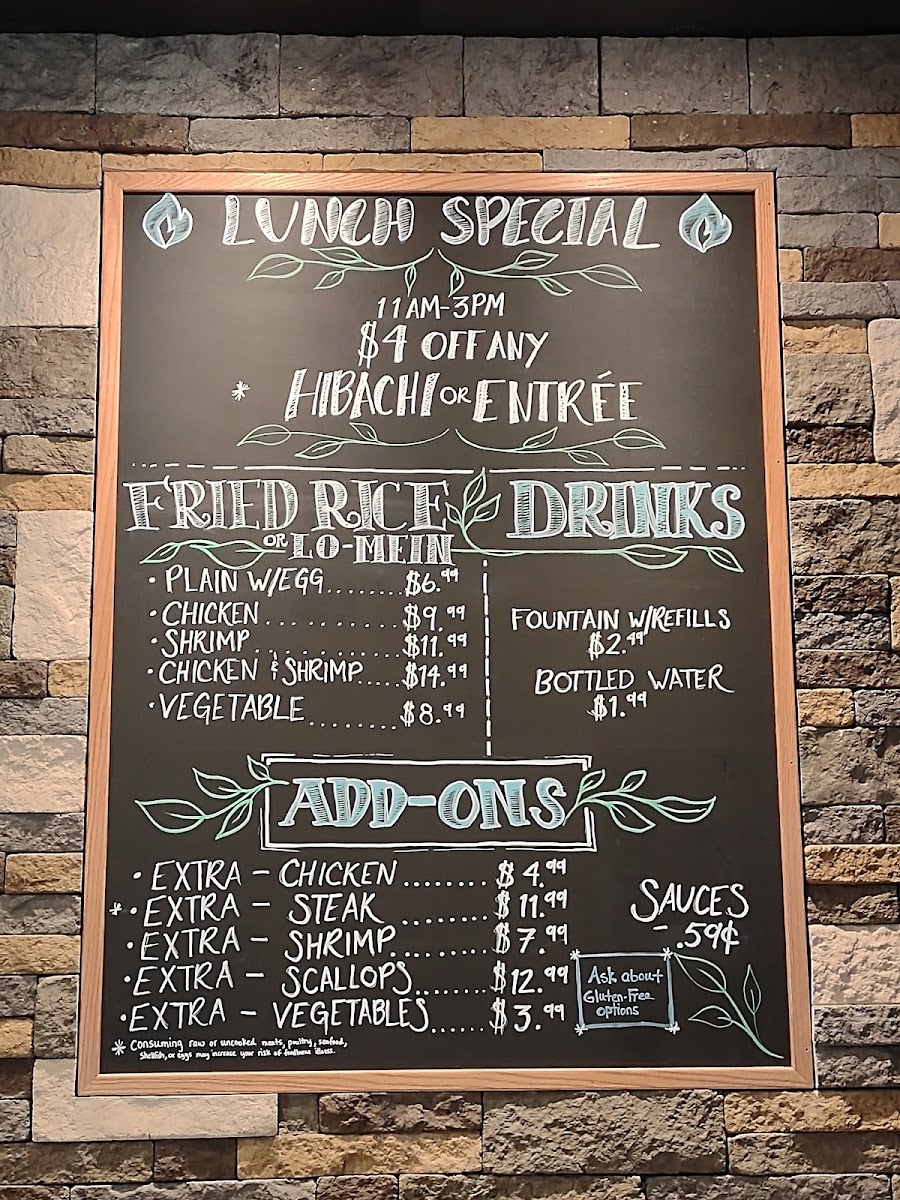 LUNCH SPECIAL
11AM-3PM
$4 OFF ANY
* HIBACHI OR ENTRÉE
FRIED RICE
OR LO-MEIN
• PLAIN W/EGG........$6.99
• CHICKEN ............$9.99
• SHRIMP ............$11.99
• CHICKEN & SHRIMP.....$14.99
• VEGETABLE ........$8.99
DRINKS
FOUNTAIN W/REFILLS
$2.49
BOTTLED WATER
$1.99
ADD-ONS
• EXTRA - CHICKEN ........ $4.99
* • EXTRA - STEAK ......... $11.99
• EXTRA - SHRIMP......... $7.99
• EXTRA - SCALLOPS....... $12.99
• EXTRA - VEGETABLES...... $3.99
SAUCES
- .59¢
Ask about
Gluten-Free
options
* Consuming raw or uncooked meats, poultry, seafood,
Shellfish, or eggs may increase your risk of foodborne illness.